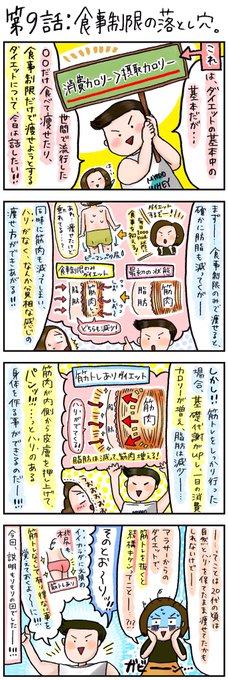 第9話：食事制限の落とし穴。
これ
は、ダイエットの基本中の
基本だが…
消費カロリー＞摂取カロリー
世間で流行した
〇〇だけ食べて痩せたり、
食事制限だけで痩せようとする
ダイエットについて、今回は話したい!!!
まず…食事制限のみで痩せると、
確かに脂肪も減ってくが…
食事制限のみ
ダイエット
最初の状態
脂肪
筋肉
脂肪
筋肉
どちらも減少
同時に筋肉も減ってしまい、
ハリがなく、なんか貧相な感じの
痩せ方ができあがる!!!
しかし!!筋トレをしっかり行った
場合、基礎代謝がUPし一日の消費
カロリーが増え、脂肪は減り…
筋トレありダイエット
筋肉
ハリがでてくる!
脂肪は減って、筋肉増える!
筋肉が内側から皮膚を押し上げて
パンッ!!!…っとハリのある
身体を作る事ができるのだー!!!
…ってことは20代の頃は
自然とハリを保てたまま痩せてたかも
しれないけど…
アラサーからの
ダイエットは
筋トレを抜くと
結構キケンってこと…!?
そのとお～り!!
筋トレあり
筋トレなくして
覚えておくよーに!!!
今回説明もりもりの回でしたー!!!